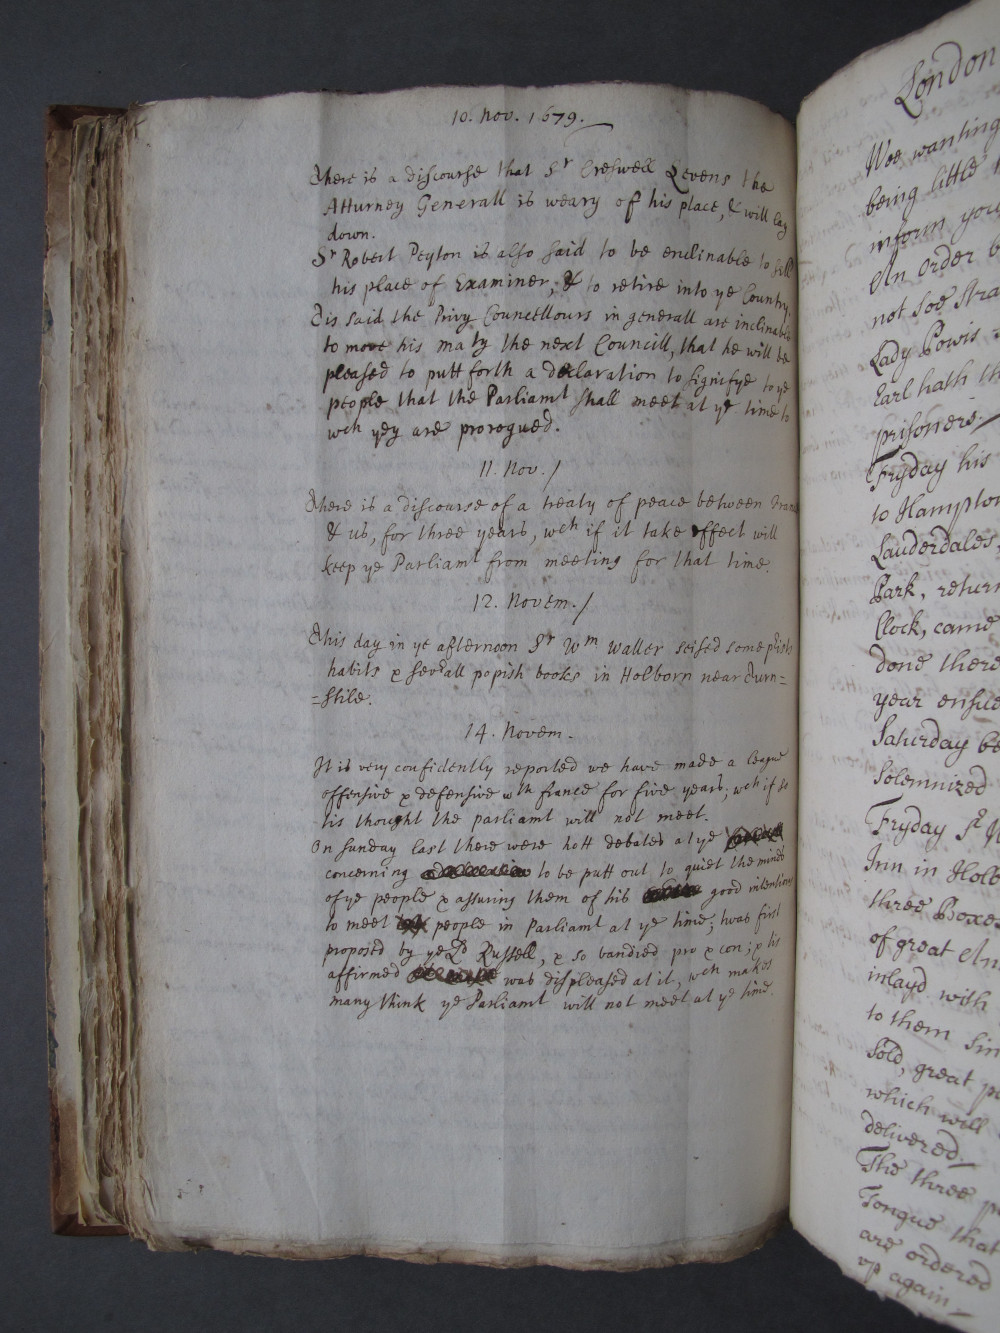 10. Nov. 1679.
There is a discourse that Sr Creswell Levens the
Atturney Generall is weary of his place, & will lay
down.
Sr Robert Peyton is also said to be enclinable to sell
his place of Examiner, & to retire into ye Country.
Tis said the Privy Councellours in generall are inclinable
to move his maty the next Councill, that he will be
pleased to putt forth a declaration to signifye to ye
people that the Parliamt shall meet at ye time to
wch yey are prorogued.
11. Nov. /
There is a discourse of a treaty of peace between
& us, for three years, wch if it take effect will
keep ye Parliamt from meeting for that time.
12. Novem. /
This day in ye afternoon Sr Wm Waller seised some
habits & severall popish books in Holborn near Turn=
=stile.
14. Novem.
It is very confidently reported we have made a league
offensive & defensive wth france for five years, wch if so
tis thought the parliamt will not meet.
On Sunday last there were hott debates at ye
concerning to be putt out to quiet the minds
of ye people & assuring them of his good intentions
to meet people in Parliamt at ye time; twas first
proposed by ye Ld Russell, & so bandied pro & con; & tis
affirmed was displeased at it, wch makes
many think ye Parliamt will not meet at ye time.
London
Wee wanting
being little
inform you
An Order
not soe
Lady Powis
Earl hath
prisoners
Fryday his
to Hampton
Lauderdales
Park, return
Clock, came
done there
year ensue
Saturday be
Solemnized
Fryday Sr
Inn in Holb
three Boxes
of great
inlayd with
to them sin
Sold, great
which will
delivered
The three
Tongue that
are ordered
up again